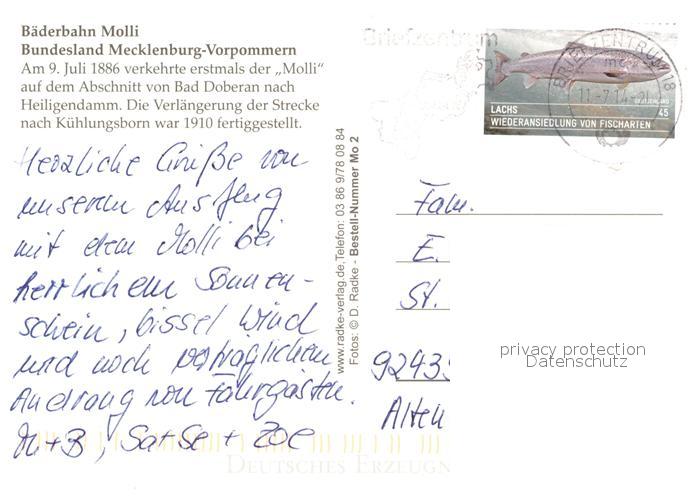 Bäderbahn Molli
Bundesland Mecklenburg-Vorpommern
Am 9. Juli 1886 verkehrte erstmals der „Molli“
auf dem Abschnitt von Bad Doberan nach
Heiligendamm. Die Verlängerung der Strecke
nach Kühlungsborn war 1910 fertiggestellt.
Herzliche Grüße von
unserem Ausflug
mit dem Molli bei
herrlichem Sonnen-
schein, bissel Wind
und noch verträglichem
Andrang von Fahrgästen.
M+B, Sa+Se + Zoe
www.radke-verlag.de, Telefon: 03 86 9/78 08 84
Fotos: © D. Radke - Bestell-Nummer Mo 2
Briefzentrum
BRIEFZENTRUM 18
11-7.14-21
DEUTSCHLAND
LACHS 45
WIEDERANSIEDLUNG VON FISCHARTEN
Fam.
E.
St.
9243
Alten
privacy protection
Datenschutz
DEUTSCHES ERZEUGN